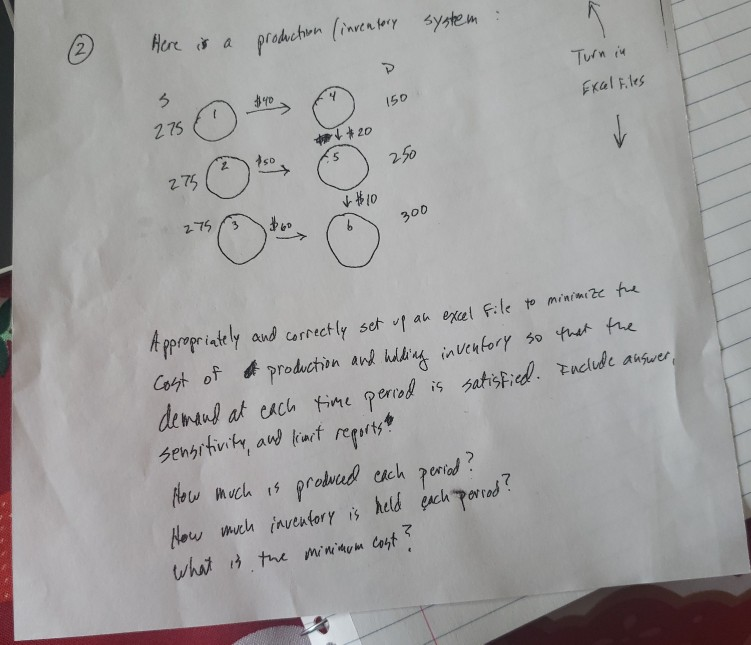 ② Here is a production/inventory system:
Turn in
Excel Files
S D
275 1 $40 4 150
$20
275 2 $50 5 250
$10
275 3 $60 6 300
Appropriately and correctly set up an excel file to minimize the
cost of production and holding inventory so that the
demand at each time period is satisfied. Include answer,
sensitivity, and limit reports.
How much is produced each period?
How much inventory is held each period?
What is the minimum cost?